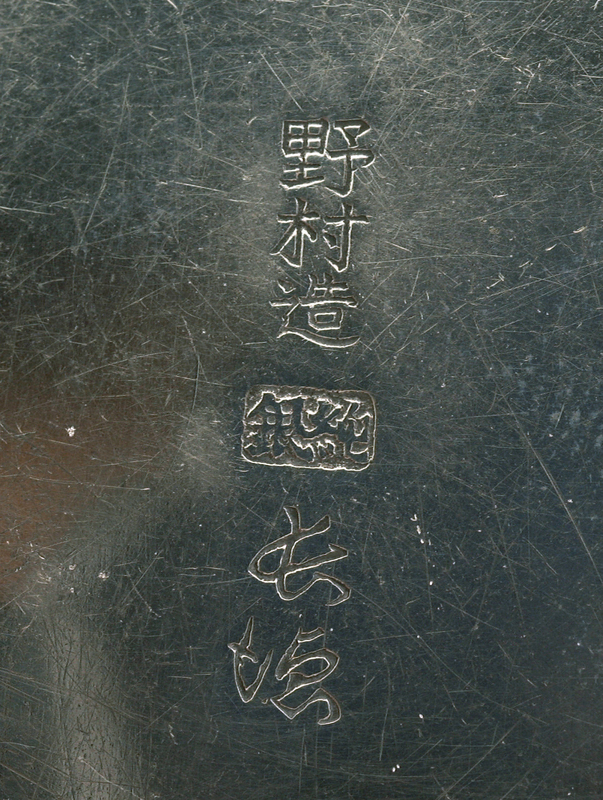 野村造
純銀
长